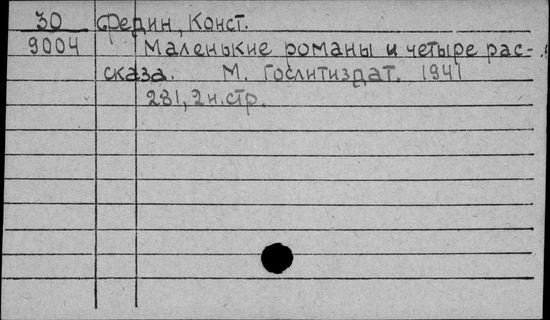 30 Федин, Конст.
9004 Маленькие романы и четыре рас-
сказа. М. Гослитиздат. 1941
281, 2 н. стр.